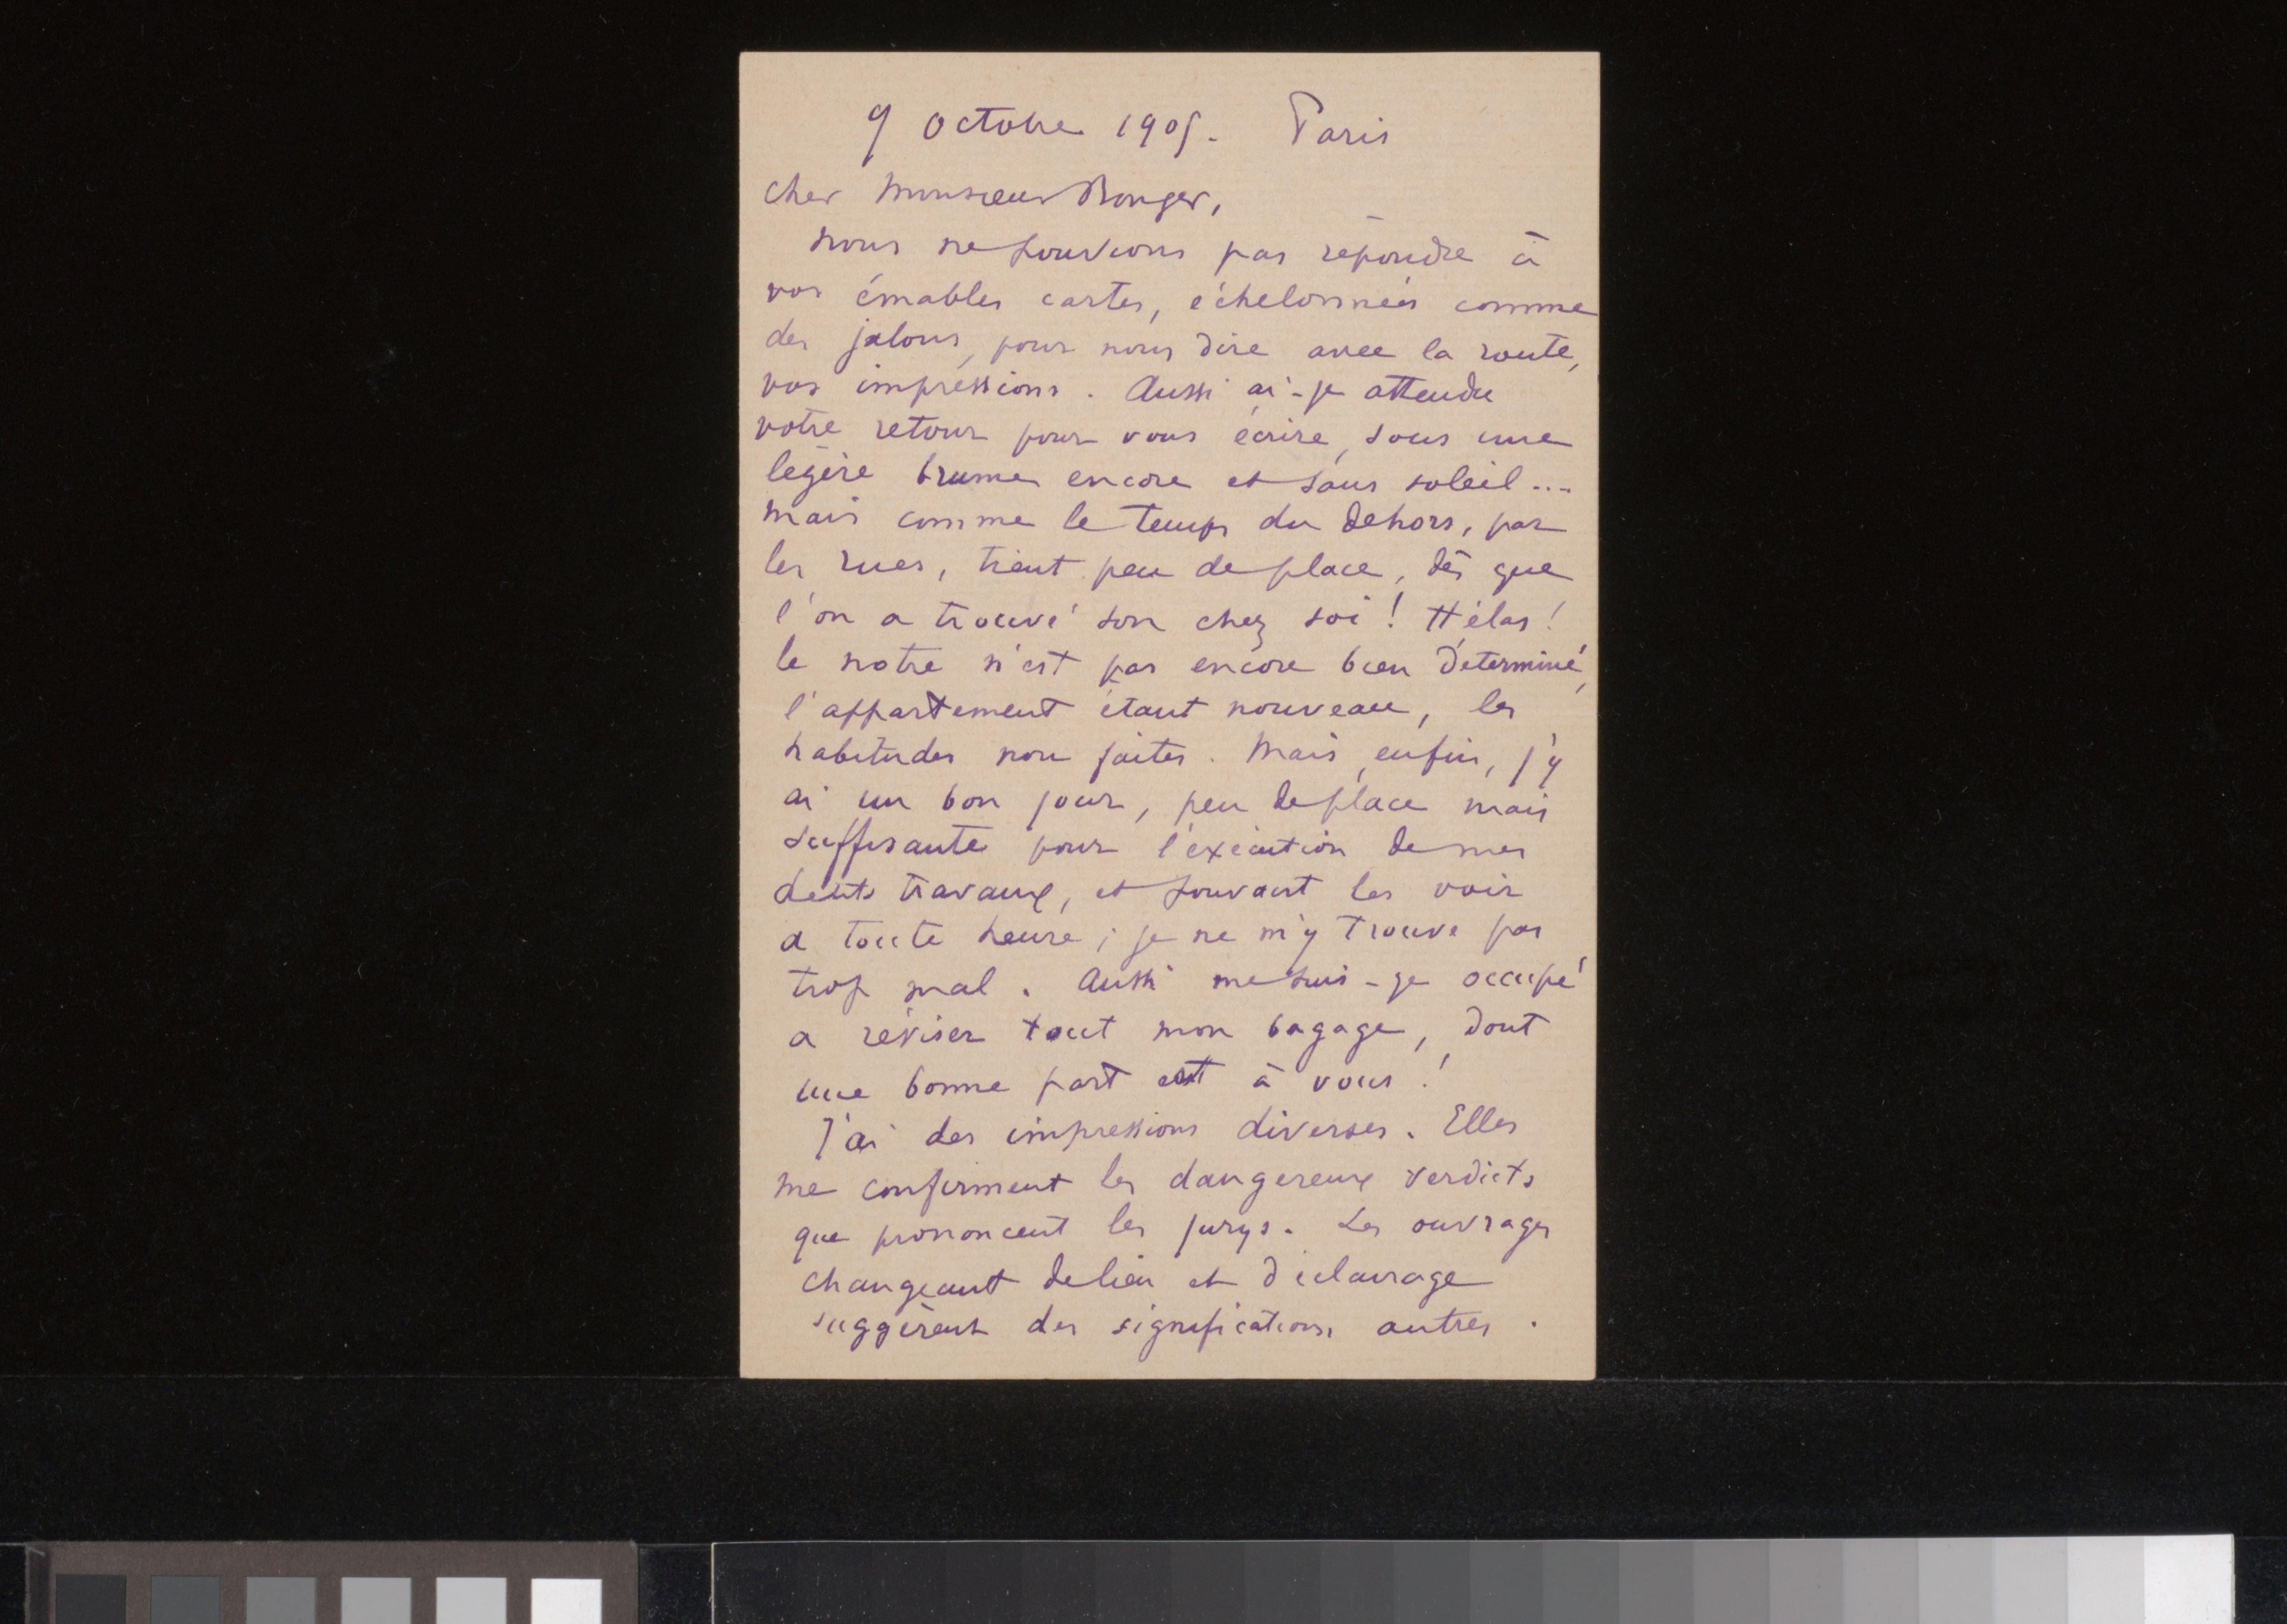 9 Octobre 1905. Paris
Cher Monsieur Bonger,
nous ne pouvions pas répondre à
vos émables cartes, échelonnées comme
des jalons, pour nous dire avec la route,
vos impressions. Aussi ai-je attendu
votre retour pour vous écrire, sous une
légère brume encore et sans soleil ...
mais comme le temps du dehors, par
les rues, tient peu de place, dès que
l'on a trouvé son chez soi ! Hélas !
le notre n'est pas encore bien déterminé,
l'appartement étant nouveau, les
habitudes non faites. Mais, enfin, j'y
ai un bon jour, peu de place mais
suffisante pour l'exécution de mes
petits travaux, et pouvant les voir
a toute heure ; je ne m'y trouve pas
trop mal. Aussi me suis-je occupé
a réviser tout mon bagage, dont
une bonne part est à vous !
J'ai des impressions diverses. Elles
me confirment les dangereux verdicts
que prononcent les jurys. Les ouvrages
changeant de lieu et d'éclairage
suggèrent des significations autres.